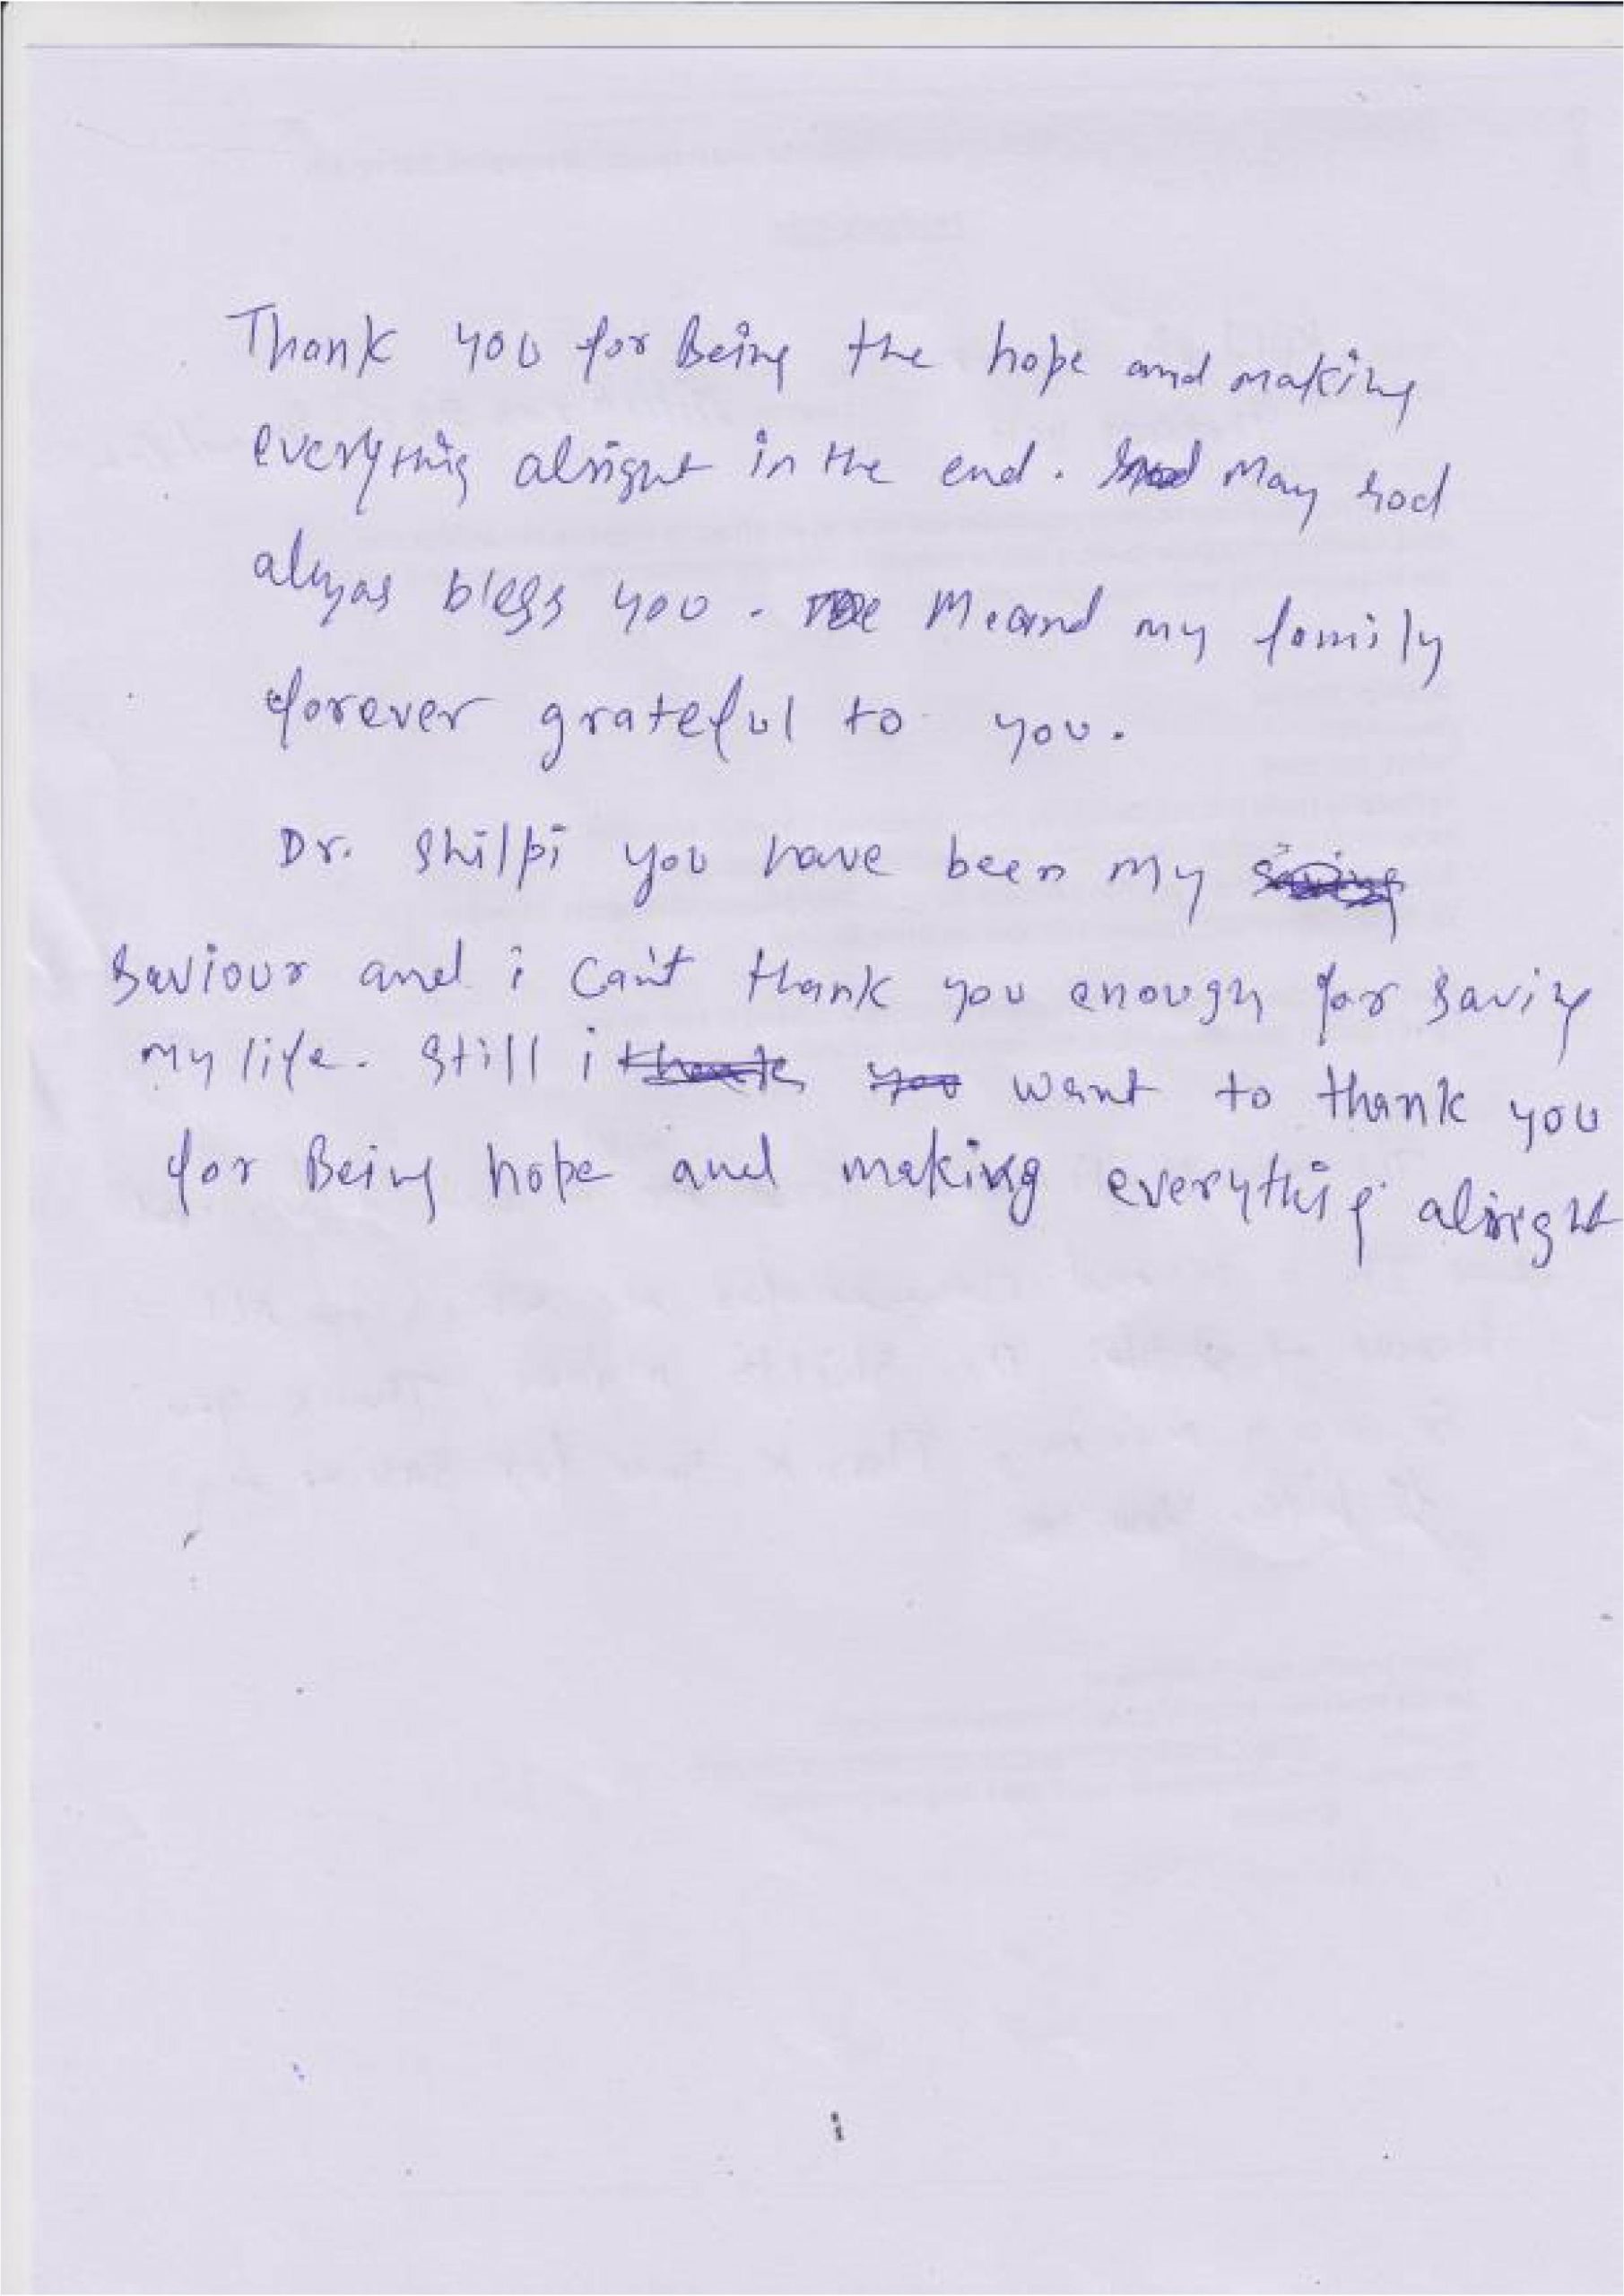 Thank you for Being the hope and making
everything alright in the end. May God
alwyas bless you. Me and my family
forever grateful to you.
Dr. Shilpi you have been my
Saviour and i can't thank you enough for saving
my life. Still i thank you want to thank you
for Being hope and making everything alright